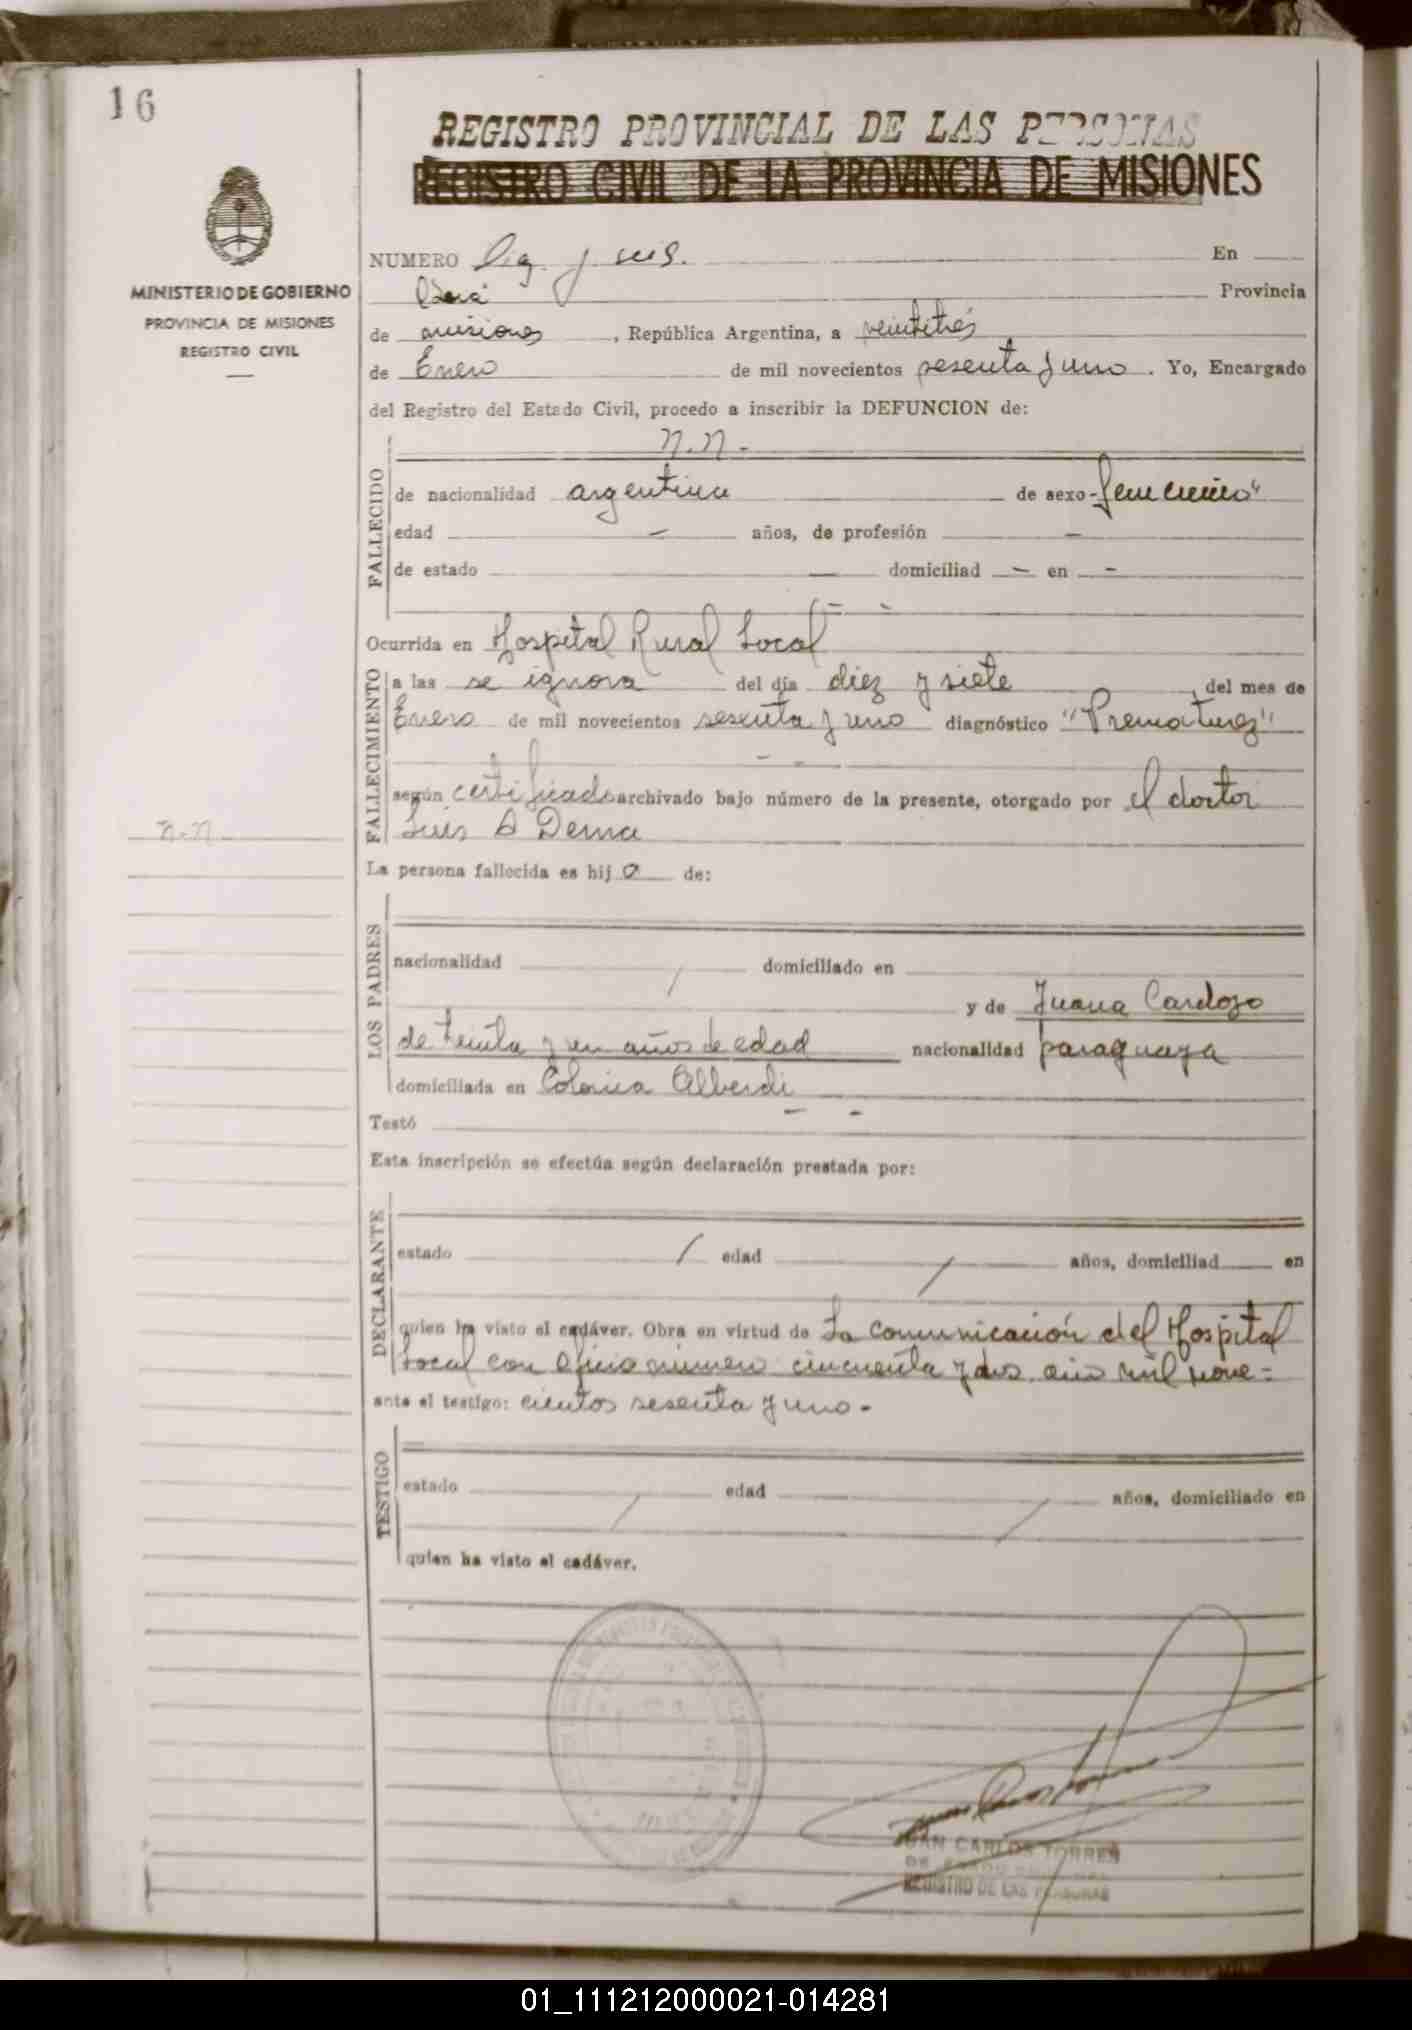 16
REGISTRO PROVINCIAL DE LAS PERSONAS
REGISTRO CIVIL DE LA PROVINCIA DE MISIONES
MINISTERIO DE GOBIERNO
PROVINCIA DE MISIONES
REGISTRO CIVIL
NUMERO Diez y seis. En
Oberá Provincia
de misiones, República Argentina, a veintitrés
de Enero de mil novecientos sesenta y uno. Yo, Encargado
del Registro del Estado Civil, procedo a inscribir la DEFUNCION de:
N.N.-
FALLECIDO
de nacionalidad argentina de sexo "femenino"
edad — años, de profesión —
de estado — domiciliad — en —
Ocurrida en Hospital Rural Local
FALLECIMIENTO
a las se ignora del día diez y siete, del mes de
Enero de mil novecientos sesenta y uno diagnóstico "Prematurez"
según certificado archivado bajo número de la presente, otorgado por el doctor
Luis A Dema
n.n.
La persona fallecida es hij a de:
LOS PADRES
nacionalidad / domiciliado en
y de Juana Cardozo
de treinta y un años de edad nacionalidad paraguaya
domiciliada en Colonia Alberdi
Testó
Esta inscripción se efectúa según declaración prestada por:
DECLARANTE
estado / edad / años, domiciliad en
quien ha visto el cadáver. Obra en virtud de La comunicación del Hospital
Local con oficio número cincuenta y dos año mil nove=
ante el testigo: cientos sesenta y uno-
TESTIGO
estado / edad / años, domiciliado en
quien ha visto el cadáver.
JUAN CARLOS TORRES
REGISTRO DE LAS PERSONAS
01_111212000021-014281